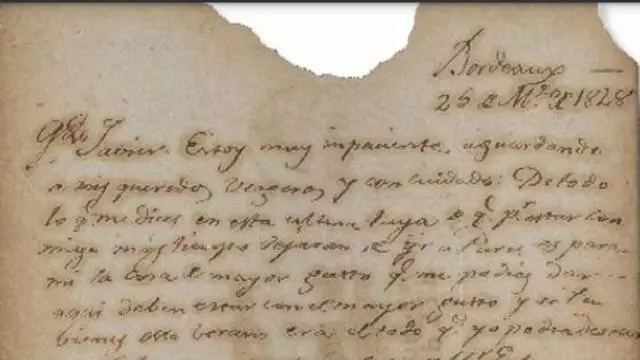 Bordeaux
26 de Mzo de 1828
Qdo Javier Estoy muy inpaciente, aguardando
a mis queridos Viageros y con cuidado: De todo
lo q.e me dices en esta ultima tuya es q.e p.r estar con
migo mas tiempo dejaran de yr a Paris es para
mi la cosa de mayor gusto q.e me podias dar
aqui deben estar con el mayor gusto y si tu
bienes este berano era el todo q.e yo podia desear